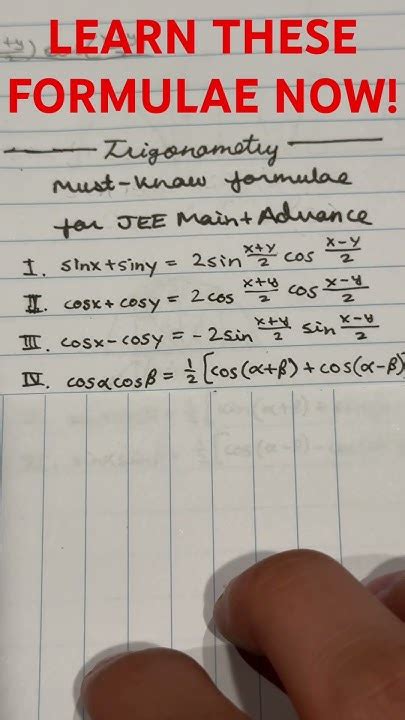 LEARN THESE
FORMULAE NOW!
Trigonometry
Must-Know formulae
for JEE Main + Advance
I. sinx + siny = 2sin x+y/2 cos x-y/2
II. cosx + cosy = 2cos x+y/2 cos x-y/2
III. cosx - cosy = -2sin x+y/2 sin x-y/2
IV. cosαcosβ = 1/2 [cos(α+β) + cos(α-β)]